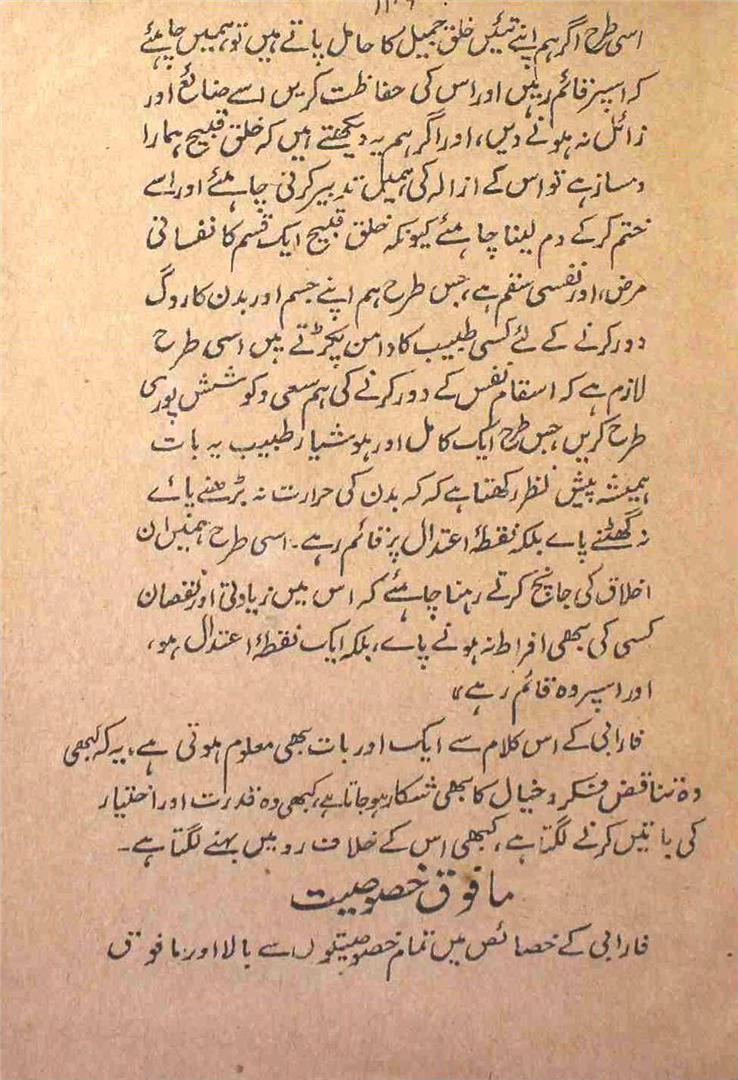 اسی طرح اگر ہم اپنے تئیں خلق جمیل کا حامل پاتے ہیں تو ہمیں چاہئے
کہ اسپر قائم رہیں اور اس کی حفاظت کریں اسے ضائع اور
زائل نہ ہونے دیں، اور اگر ہم یہ دیکھتے ہیں کہ خلق قبیح ہمارا
دمساز ہے تو اس کے ازالہ کی ہمیں تدبیر کرنی چاہئے اور اسے
ختم کر کے دم لینا چاہئے کیونکہ خلق قبیح ایک قسم کا نفسانی
مرض، اور نفسی سقم ہے، جس طرح ہم اپنے جسم اور بدن کا روگ
دور کرنے کے لئے کسی طبیب کا دامن پکڑتے ہیں اسی طرح
لازم ہے کہ اسقام نفس کے دور کرنے کی ہم سعی و کوشش پوری
طرح کریں، جس طرح ایک کامل اور ہوشیار طبیب یہ بات
ہمیشہ پیش نظر رکھتا ہے کہ کہ بدن کی حرارت نہ بڑھنے پائے
نہ گھٹنے پاے بلکہ نقطۂ اعتدال پر قائم رہے۔ اسی طرح ہمیں ان
اخلاق کی جانچ کرتے رہنا چاہئے کہ اس میں زیادتی اور نقصان
کسی کی بھی افراط نہ ہونے پاے، بلکہ ایک نقطۂ اعتدال ہو،
اور اسپر وہ قائم رہے"
فارابی کے اس کلام سے ایک اور بات بھی معلوم ہوتی ہے، یہ کہ کبھی
وہ تناقض فکر و خیال کا بھی شکار ہو جاتا ہے، کبھی وہ قدرت اور اختیار
کی باتیں کرنے لگتا ہے، کبھی اس کے خلاف رو میں بہنے لگتا ہے۔
مافوق خصوصیت
فارابی کے خصائص میں تمام خصوصیتوں سے بالا اور مافوق